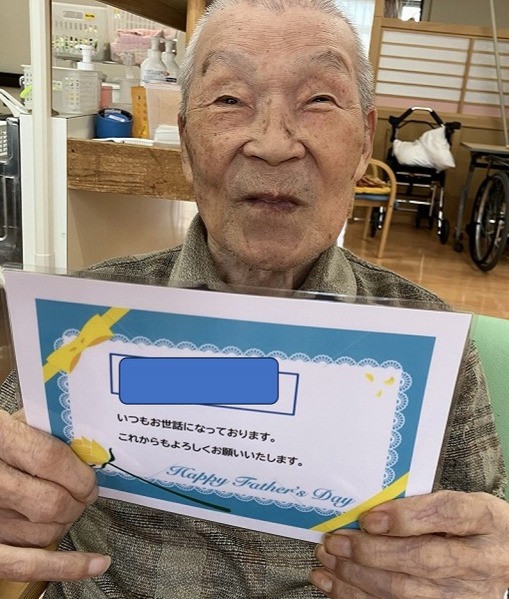 いつもお世話になっております。
これからもよろしくお願いいたします。
Happy Father's Day